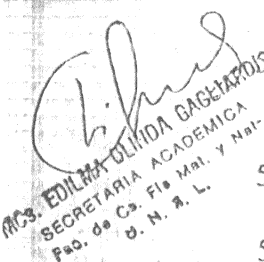 MCs. EDILMA OLINDA GAGLIARDIS
SECRETARIA ACADEMICA
Fac. de Cs. Fis Mat. y Nat-
U. N. S. L.